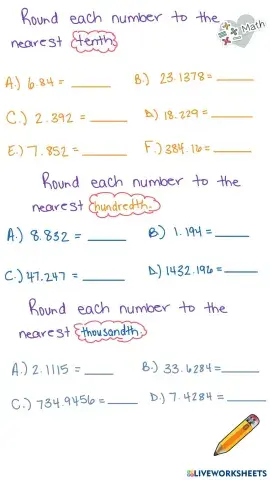 Round each number to the
nearest tenth.
Math
A.) 6.84 = ______ B.) 23.1378 = ______
C.) 2.392 = ______ D.) 18.229 = ______
E.) 7.852 = ______ F.) 384.16 = ______
Round each number to the
nearest hundredth.
A.) 8.832 = ______ B.) 1.194 = ______
C.) 47.247 = ______ D.) 1432.196 = ______
Round each number to the
nearest thousandth.
A.) 2.1115 = ______ B.) 33.6284 = ______
C.) 734.9456 = ______ D.) 7.4284 = ______
LIVEWORKSHEETS